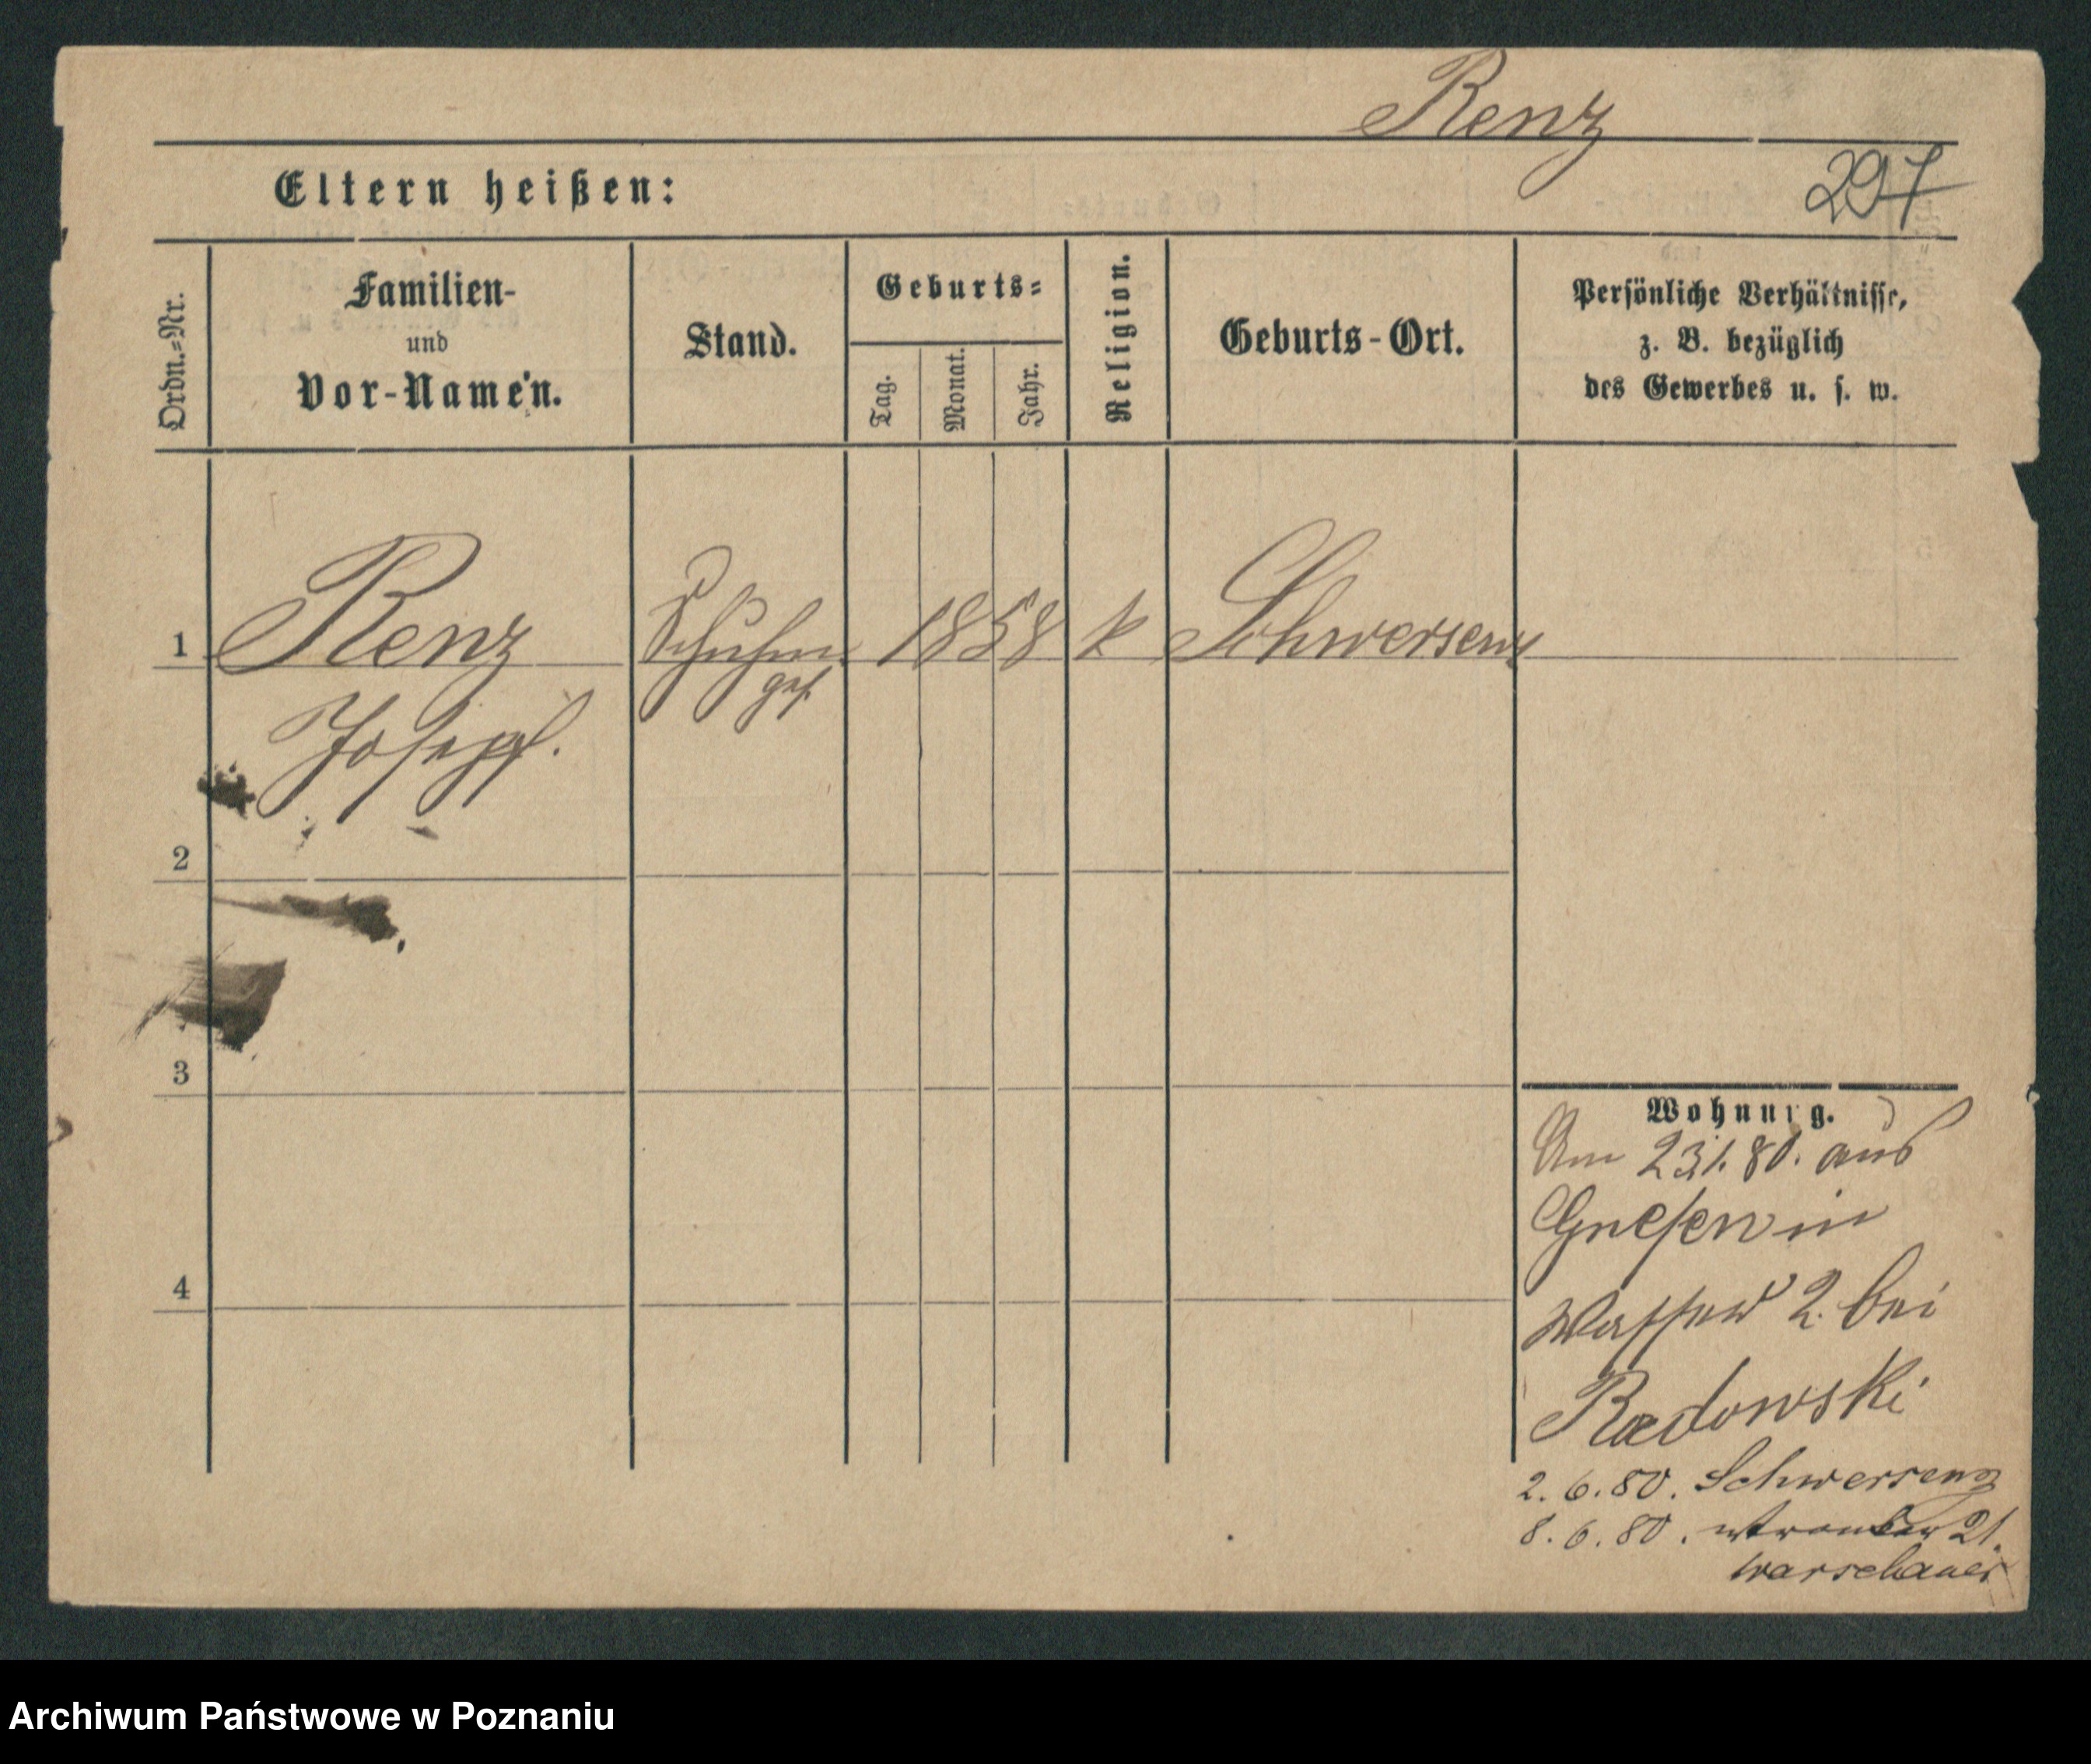 Renz
297
Eltern heißen:
Ordn.=Nr.
Familien-
und
Vor-Namen.
Stand.
Geburts=
Tag.
Monat.
Jahr.
Religion.
Geburts-Ort.
Persönliche Verhältnisse,
z. B. bezüglich
des Gewerbes u. s. w.
1
Renz
Schuhm.
ges.
1858
k
Schwersenz
Joseph.
2
3
4
Wohnung.
Am 23.1.80. aus
Gnesen in
Wasser 2. bei
Radowski
2. 6. 80. Schwersenz
8. 6. 80. 21.
Warschauer
Archiwum Państwowe w Poznaniu